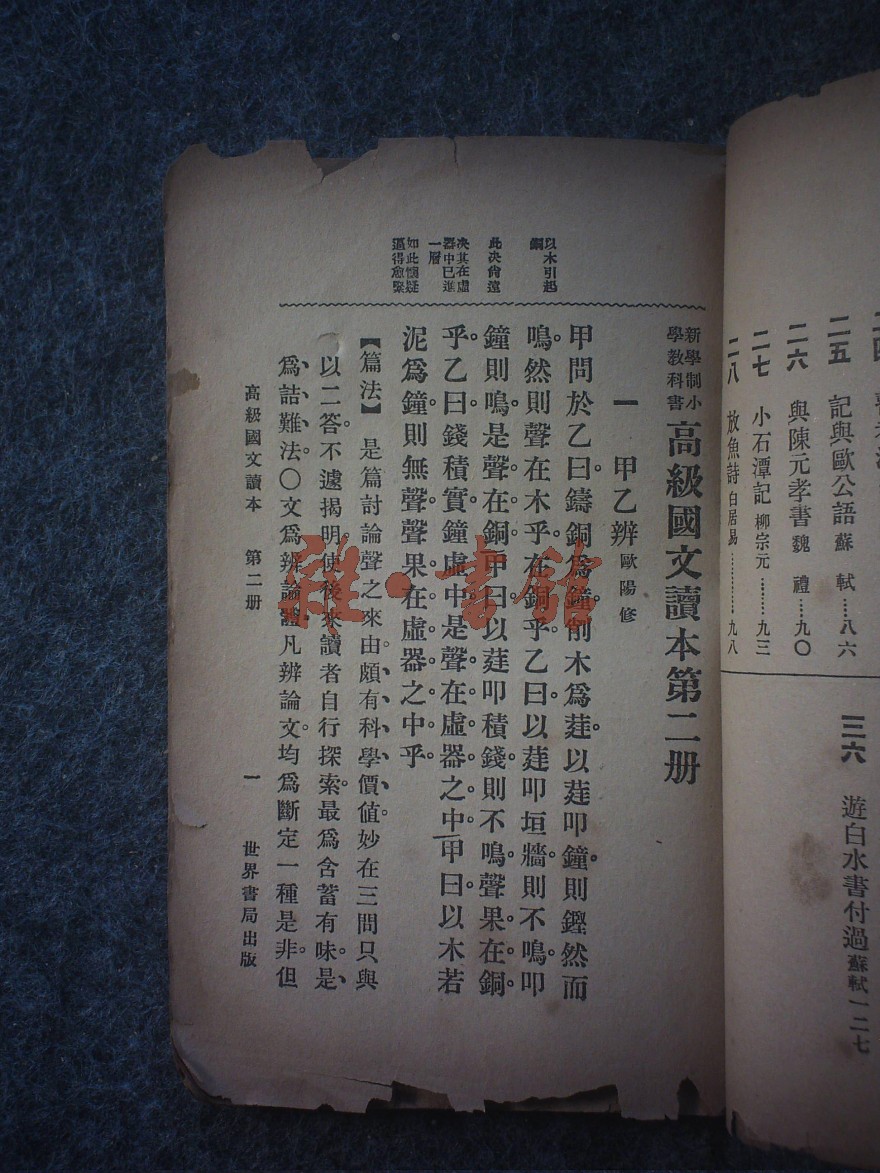 二五 記與歐公語 蘇軾……八六
二六 與陳元孝書 魏禮……九〇
二七 小石潭記 柳宗元………九三
二八 放魚詩 白居易…………九八
三六 遊白水書付過 蘇軾 一二七
新學制小
學教科書
高級國文讀本第二册
一 甲乙辨 歐陽修
以木引起
銅
此決尙遠
決其在虛
器中已進
一層
如此懷疑
逼得愈緊
甲問於乙曰。鑄銅爲鐘。削木爲莛。以莛叩鐘。則鏗然而
鳴。然則聲在木乎。在銅乎。乙曰。以莛叩垣牆則不鳴。叩
鐘則鳴。是聲在銅。甲曰。以莛叩積錢則不鳴。聲果在銅
乎。乙曰。錢積實。鐘虛中。是聲在虛器之中。甲曰。以木若
泥爲鐘則無聲。聲果在虛器之中乎。
【篇法】 是篇討論聲之來由。頗有科學價値。妙在三問只與
以二答。不遽揭明。使後來讀者自行探索。最爲含蓄有味。是
爲詰難法。〇文爲辨論體。凡辨論文。均爲斷定一種是非。但
高級國文讀本 第二册 一 世界書局出版
雜·書館